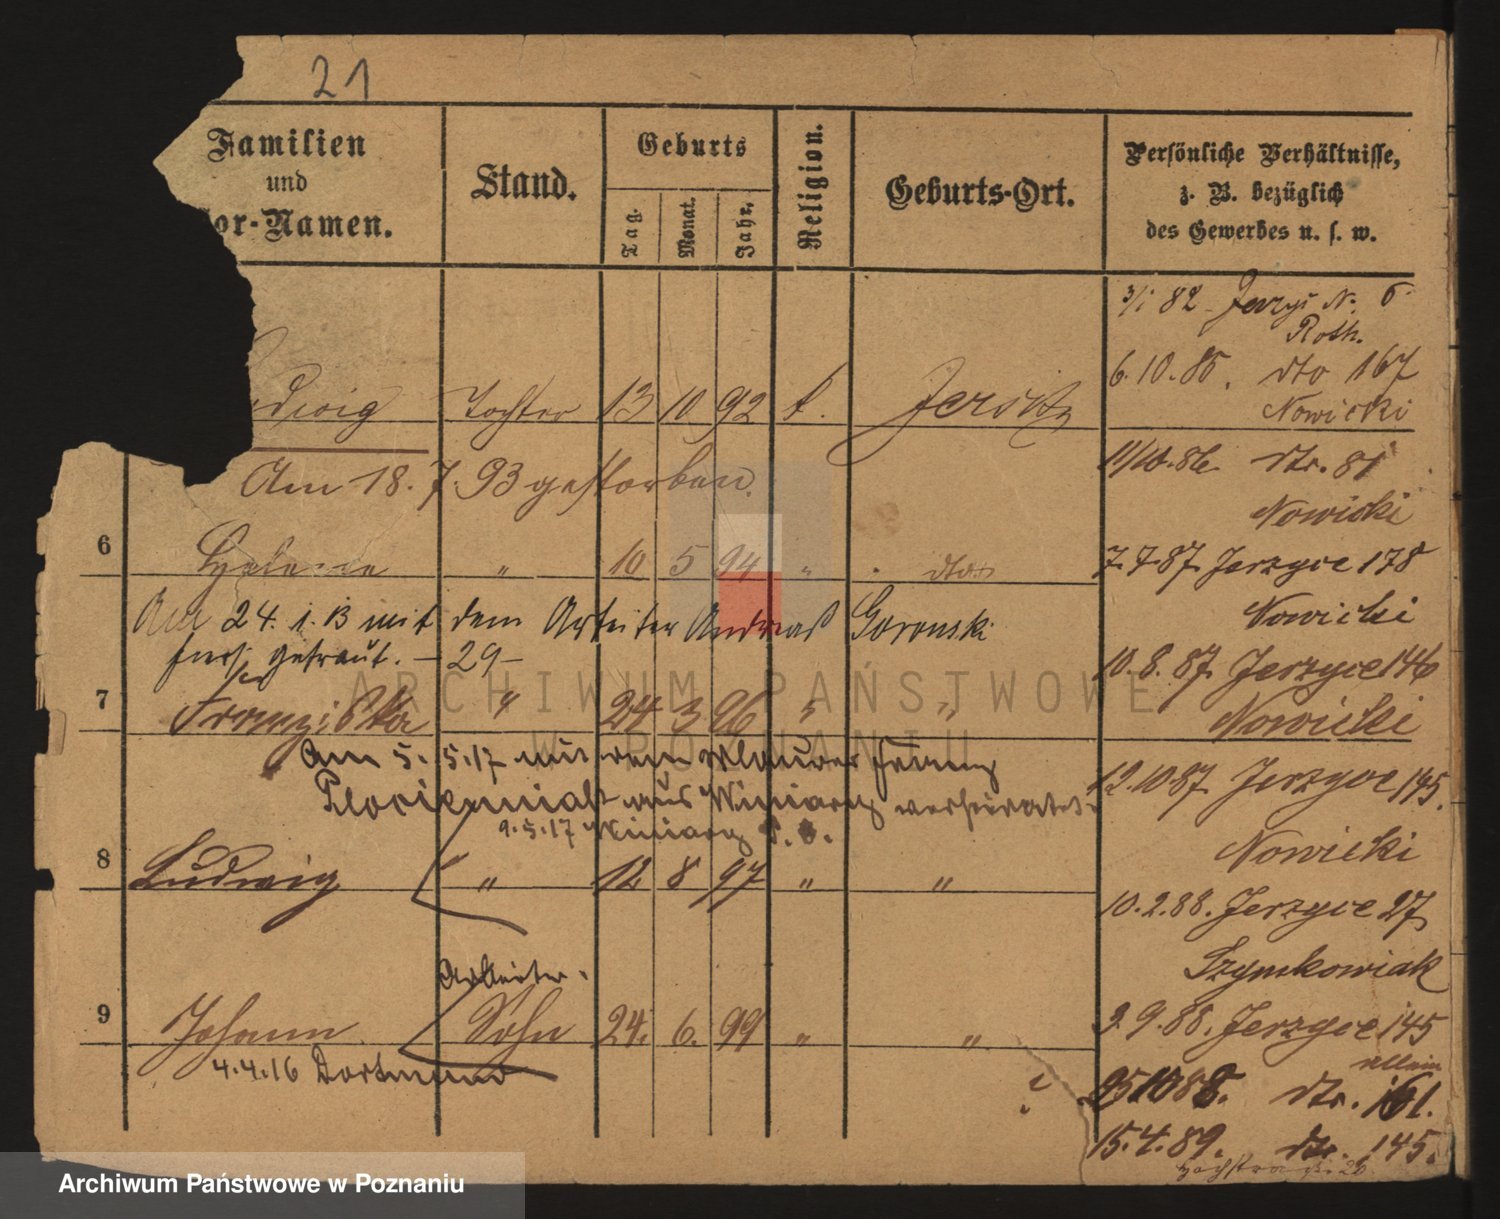 21
Familien
und
or-Namen.
Stand.
Geburts
Tag.
Monat.
Jahr.
Religion.
Geburts-Ort.
Persönliche Verhältnisse,
z. B. bezüglich
des Gewerbes u. s. w.
3/1 82 Jerzyc N. 6
Roth.
6.10.85. dto 167
Nowicki
dwig Tochter 13 10 92 k. Jersitz
11/10.86. dto. 81
Nowicki
Am 18.7.93 gestorben.
6 Helene " 10 5 94 " dto
7.7.87 Jerzyce 178
Nowicki
Am 24. 1. 13 mit dem Arbeiter Andreas Goronski
getraut. - 29 -
10.8.87 Jerzyce 146
Nowicki
7 Franziska " 24 3 96 " "
Am 5. 5.17 mit dem Maurer Franz
Floriczniak aus Winiary verheiratet
12.10 87 Jerzyce 145.
Nowicki
9.5.17 Winiary
8 Ludwig " 12 8 97 " "
10.2.88. Jerzyce 27
Szymkowiak
Arbeiter.
9 Johann Sohn 24. 6. 99 " "
9.9.88. Jerzyce 145
allein
4.4.16 Dortmund
25 10 88. dto. 161.
15.4.89. dto. 145.
ARCHIWUM PAŃSTWOWE
W POZNANIU
Archiwum Państwowe w Poznaniu